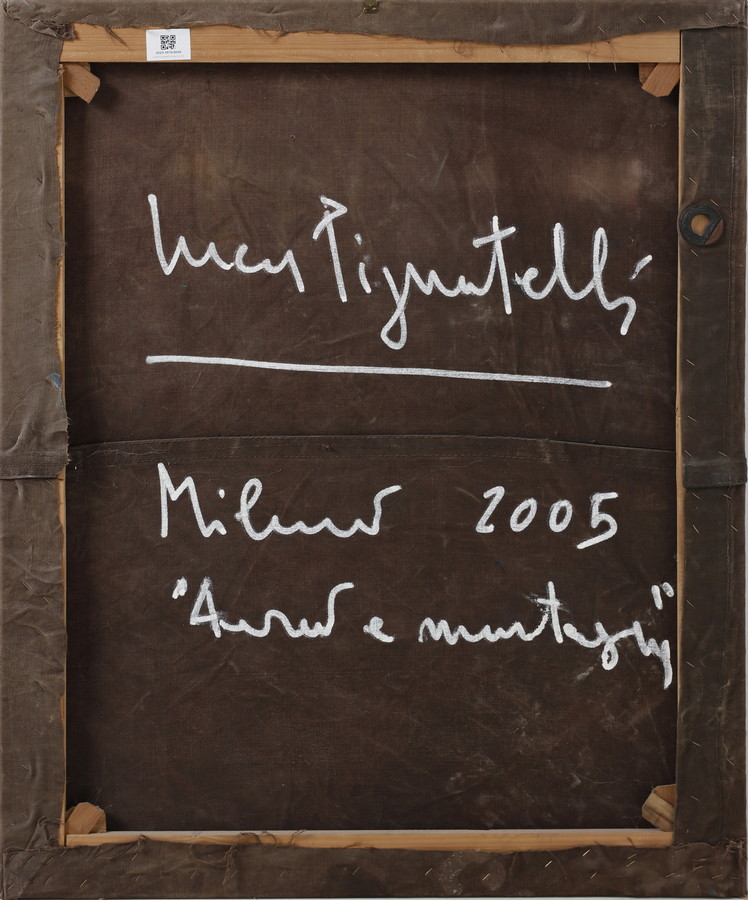 Luca Pignatelli
Milano 2005
"Aereo e montagne"